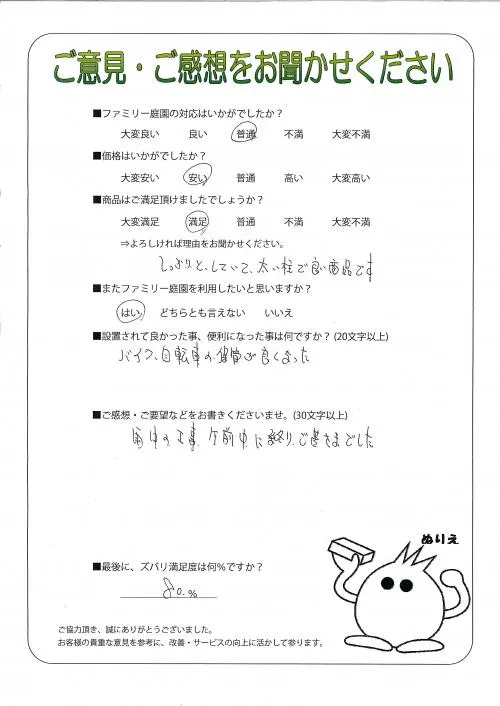 ご意見・ご感想をお聞かせください
■ファミリー庭園の対応はいかがでしたか？
大変良い 良い 普通 不満 大変不満
■価格はいかがでしたか？
大変安い 安い 普通 高い 大変高い
■商品はご満足頂けましたでしょうか？
大変満足 満足 普通 不満 大変不満
⇒よろしければ理由をお聞かせください。
しっかりと、していて、太い柱で良い商品です
■またファミリー庭園を利用したいと思いますか？
はい どちらとも言えない いいえ
■設置されて良かった事、便利になった事は何ですか？(20文字以上)
バイク、自転車の保管が良くなった
■ご感想・ご要望などをお書きくださいませ。(30文字以上)
雨中の工事、午前中に終り、ご苦さまでした
ぬりえ
■最後に、ズバリ満足度は何％ですか？
80.%
ご協力頂き、誠にありがとうございました。
お客様の貴重な意見を参考に、改善・サービスの向上に活かして参ります。